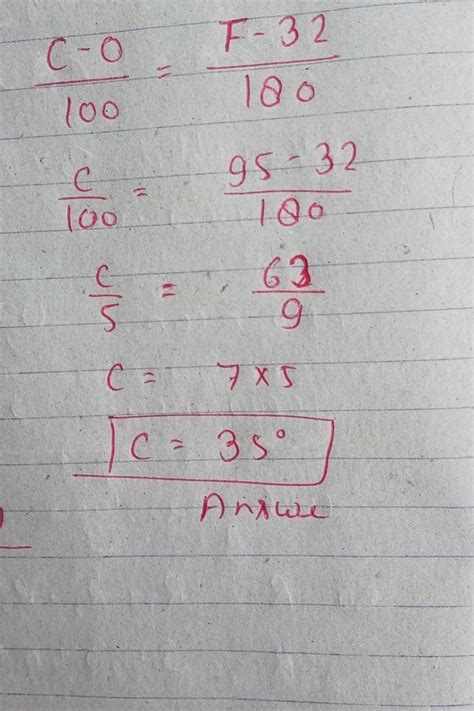 C-0/100 = F-32/180
C/100 = 95-32/180
C/5 = 63/9
C = 7×5
C = 35°